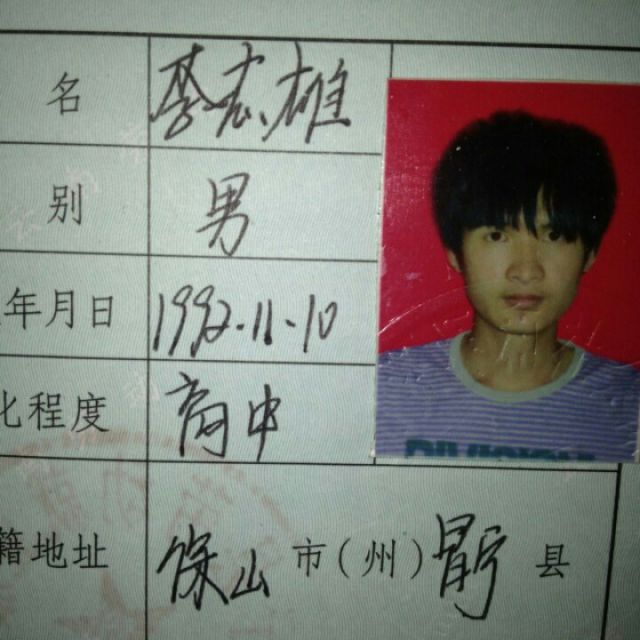 名 李宏雄
别 男
年月日 1992.11.10
化程度 高中
籍地址 保山市(州)昌宁县